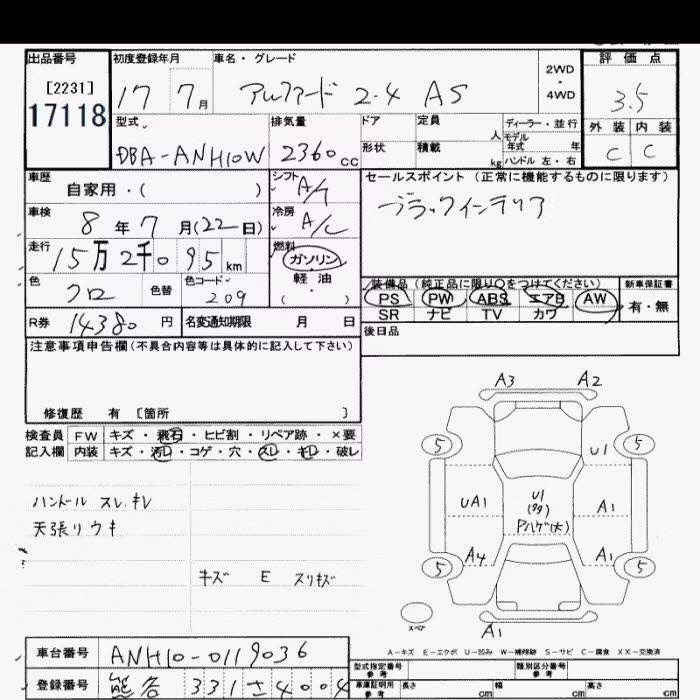 出品番号 初度登録年月 車名・グレード 2WD・4WD 評価点
[2231]
17118
17 7月 アルファード 2.4 AS 3.5
型式 排気量 ドア 定員 人 ディーラー・並行 外装 内装
モデル年式 年
DBA-ANH10W 2360cc 形状 積載 kg ハンドル 左・右 C C
車歴 自家用・( ) シフト A/T セールスポイント (正常に機能するものに限ります)
車検 8年7月(22日) 冷房 A/C ブラックインテリア
走行 15万2千095km 燃料 ガソリン
軽油
( )
色 クロ 色替 色コード 209
装備品(純正品に限り○をつけてください) 新車保証書
PS PW ABS エアB AW 有・無
SR ナビ TV カワ
R券 14380円 名変通知期限 月 日
後日品
注意事項申告欄(不具合内容等は具体的に記入して下さい)
修復歴 有 [箇所 ]
検査員 FW キズ・飛石・ヒビ割・リペア跡・×要
記入欄 内装 キズ・汚レ・コゲ・穴・スレ・キレ・破レ
ハンドル スレ.キレ
天張リウキ
キズ E スリキズ
A3 A2
5 5
U1
UA1 U1 A1
Pハゲ(大)
A4 A1
5 5
スペア A1
A-キズ E-エクボ U-凹み W-補修跡 S-サビ C-腐食 XX-交換済
車台番号 ANH10-0119036
型式指定番号 参考 類別区分番号 参考
登録番号 331 さ 4004
車庫証明用 参考 長さ cm 幅 cm 高さ cm